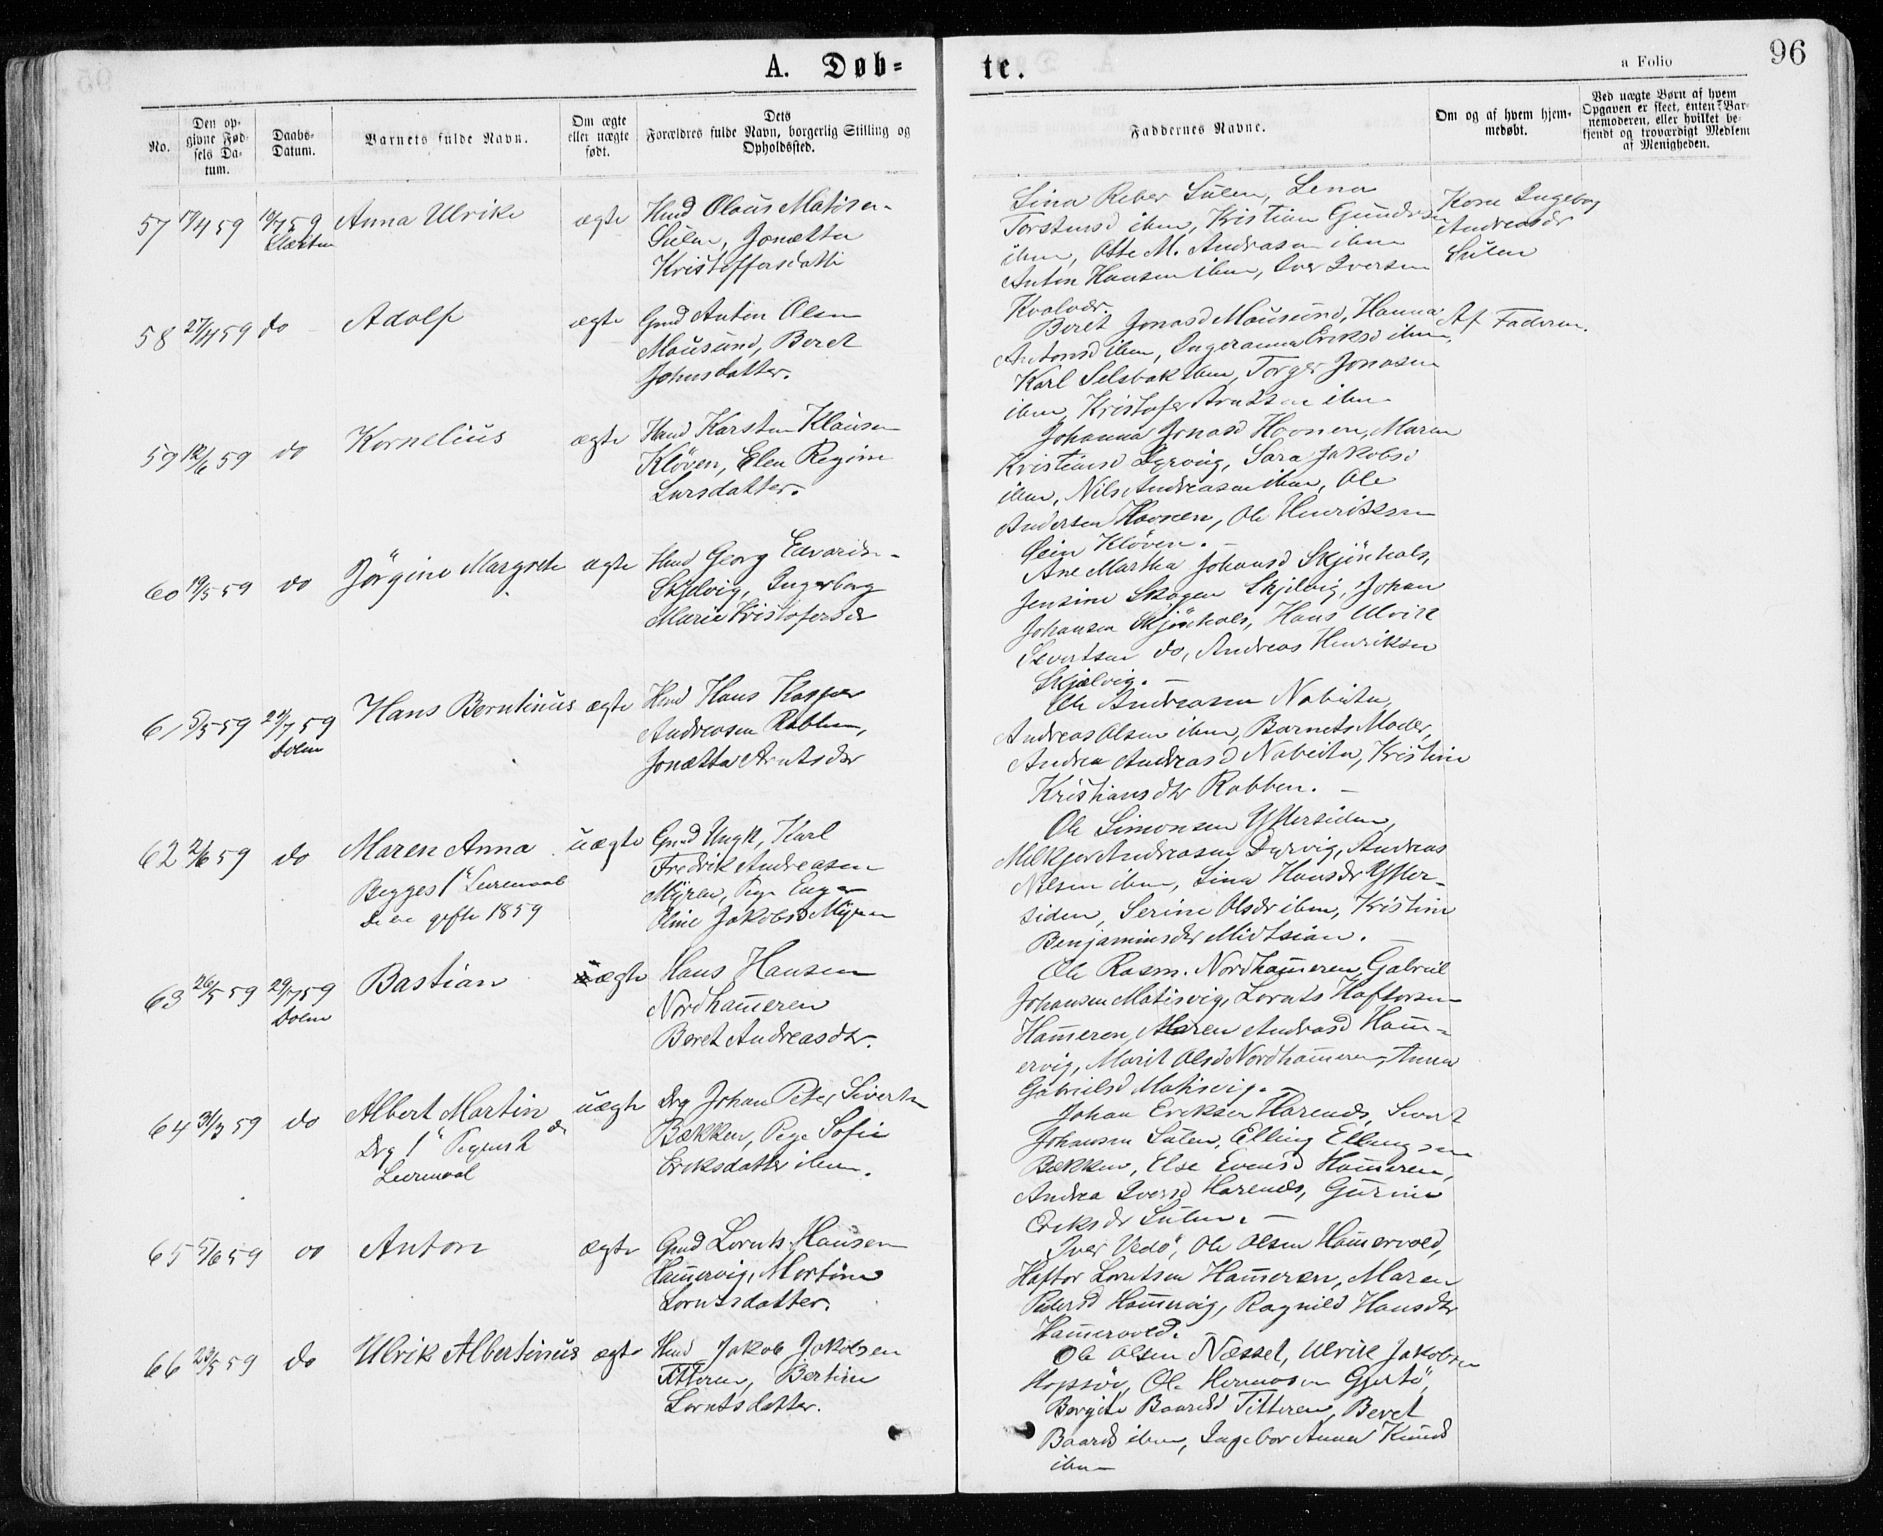 A. Døb=
te.
a Folio
96
No.
Den op-
givne Fød-
sels Da-
tum.
Daabs-
Datum.
Barnets fulde Navn.
Om ægte
eller uægte
født.
Dets
Forældres fulde Navn, borgerlig Stilling og
Opholdssted.
Faddernes Navne.
Om og af hvem hjem-
medøbt.
Ved uægte Børn af hvem
Opgaven er skeet, enten Bar-
nemoderen, eller hvilket be-
kjendt og troværdigt Medlem
af Menigheden.
57 17/4 59 Anna Ulrike ægte Hmd Olaus Matisen
Sulen, Jonetta
Kristoffersdatter
Sina Reber Sulen, Lena
Torstensd ibm, Kristian Gundersen
ibm, Otte M. Andreasen ibm
Anton Hansen ibm, Iver Iversen
Kvalvær.
Andreasdr
Sulen
58 27/4 59 do Adolf ægte Gmd Anton Olsen
Mausund, Beret
Johnsdatter.
Beret Jonasd Mausund, Hanna
Antonsd ibm, Ingeranna Eriksd ibm,
Karl Selsbak ibm, Torger Jonasen
ibm, Kristofer ibm
Af Faderen.
59 12/6 59 do Kornelius ægte Hmd Karsten Klausen
Kløven, Elen Regine
Larsdatter.
Johanna Jonasd Hovnen, Maren
Kristiansd Dyrvig, Sara Jakobsd
ibm, Nils Andreasen ibm, Ole
Andersen Hovnen, Ole Henriksen
Kløven.
60 19/5 59 do Jörgine Margrete ægte Hmd Georg Edvardsen
Skjelvig, Ingeborg
Marie Kristofersdr
Ane Martha Johansd Skjönhals,
Jensine Skogen Skjelvig, Johan
Johansen Skjönhals, Hans Ulrik
Sivertsen do, Andreas Henriksen
Skjælvig.
61 5/5 59 27/7 59
Dolm
Hans Berntinus ægte Hmd Hans Kasper
Andreasen Rabben,
Jonetta Arntsdr
Ole Andreasen Nabeita,
Andreas Olsen ibm, Barnets Moder,
Andrea Andreasd Nabeita, Kristine
Kristiansdtr Rabben.
62 2/6 59 do Maren Anna uægte Gmd Ungk, Karl
Begges 1ste Leiermaal
De ere gifte 1859
Fredrik Andreasen
Myren, Pige
Oline Jakobsd Myren
Ole Simonsen Yttersiden,
Melkjor Andreasen Dyrvig, Andreas
Nilsen ibm, Lina Hansdr Ytter-
siden, Serine Olsdr ibm, Kristine
Benjaminsdr Midtsian.
63 26/5 59 29/7 59
Dolm
Bastian ægte Hans Hansen
Nordhameren
Beret Andreasdtr.
Ole Rasm. Nordhameren, Gabriel
Johansen Matisvig, Lornts Haftorsen
Hameren, Maren Andreasd Ham-
ervig, Marit Olsd Nordhameren, Anna
Gabrielsd Matisvig.
64 31/3 59 do Albert Martin uægte Drg Johan Peter Sivertsen
Drg 1ste Pigens 2de
Leiermaal
Bækken, Pige Sofie
Eriksdatter ibm.
Johan Eriksen Harenes, Sivert
Johansen Sulen, Elling Ellingsen
Bækken, Else Evensd Hameren,
Andrea Iversd Harenes, Gurine
Eriksdr Sulen.
65 5/6 59 do Anton ægte Gmd Lornts Hansen
Hamervig, Mortine
Lorntsdatter.
Iver Vedö, Ole Olsen Hamervold,
Haftor Lorntsen Hameren, Maren
Pedersd Hamervig, Ragnild Hansdtr
Hamervold.
66 23/5 59 do Ulrik Albertinus ægte Hmd Jakob Jakobsen
Titteren, Bertine
Lorntsdatter.
Ole Olsen Næsset, Ulrik Jakobsen
Hopsöe, Ole Hermosen Gjertö,
Borgite Baardsd Titteren, Beret
Baardsd ibm, Ingebor Anna Knuds
ibm